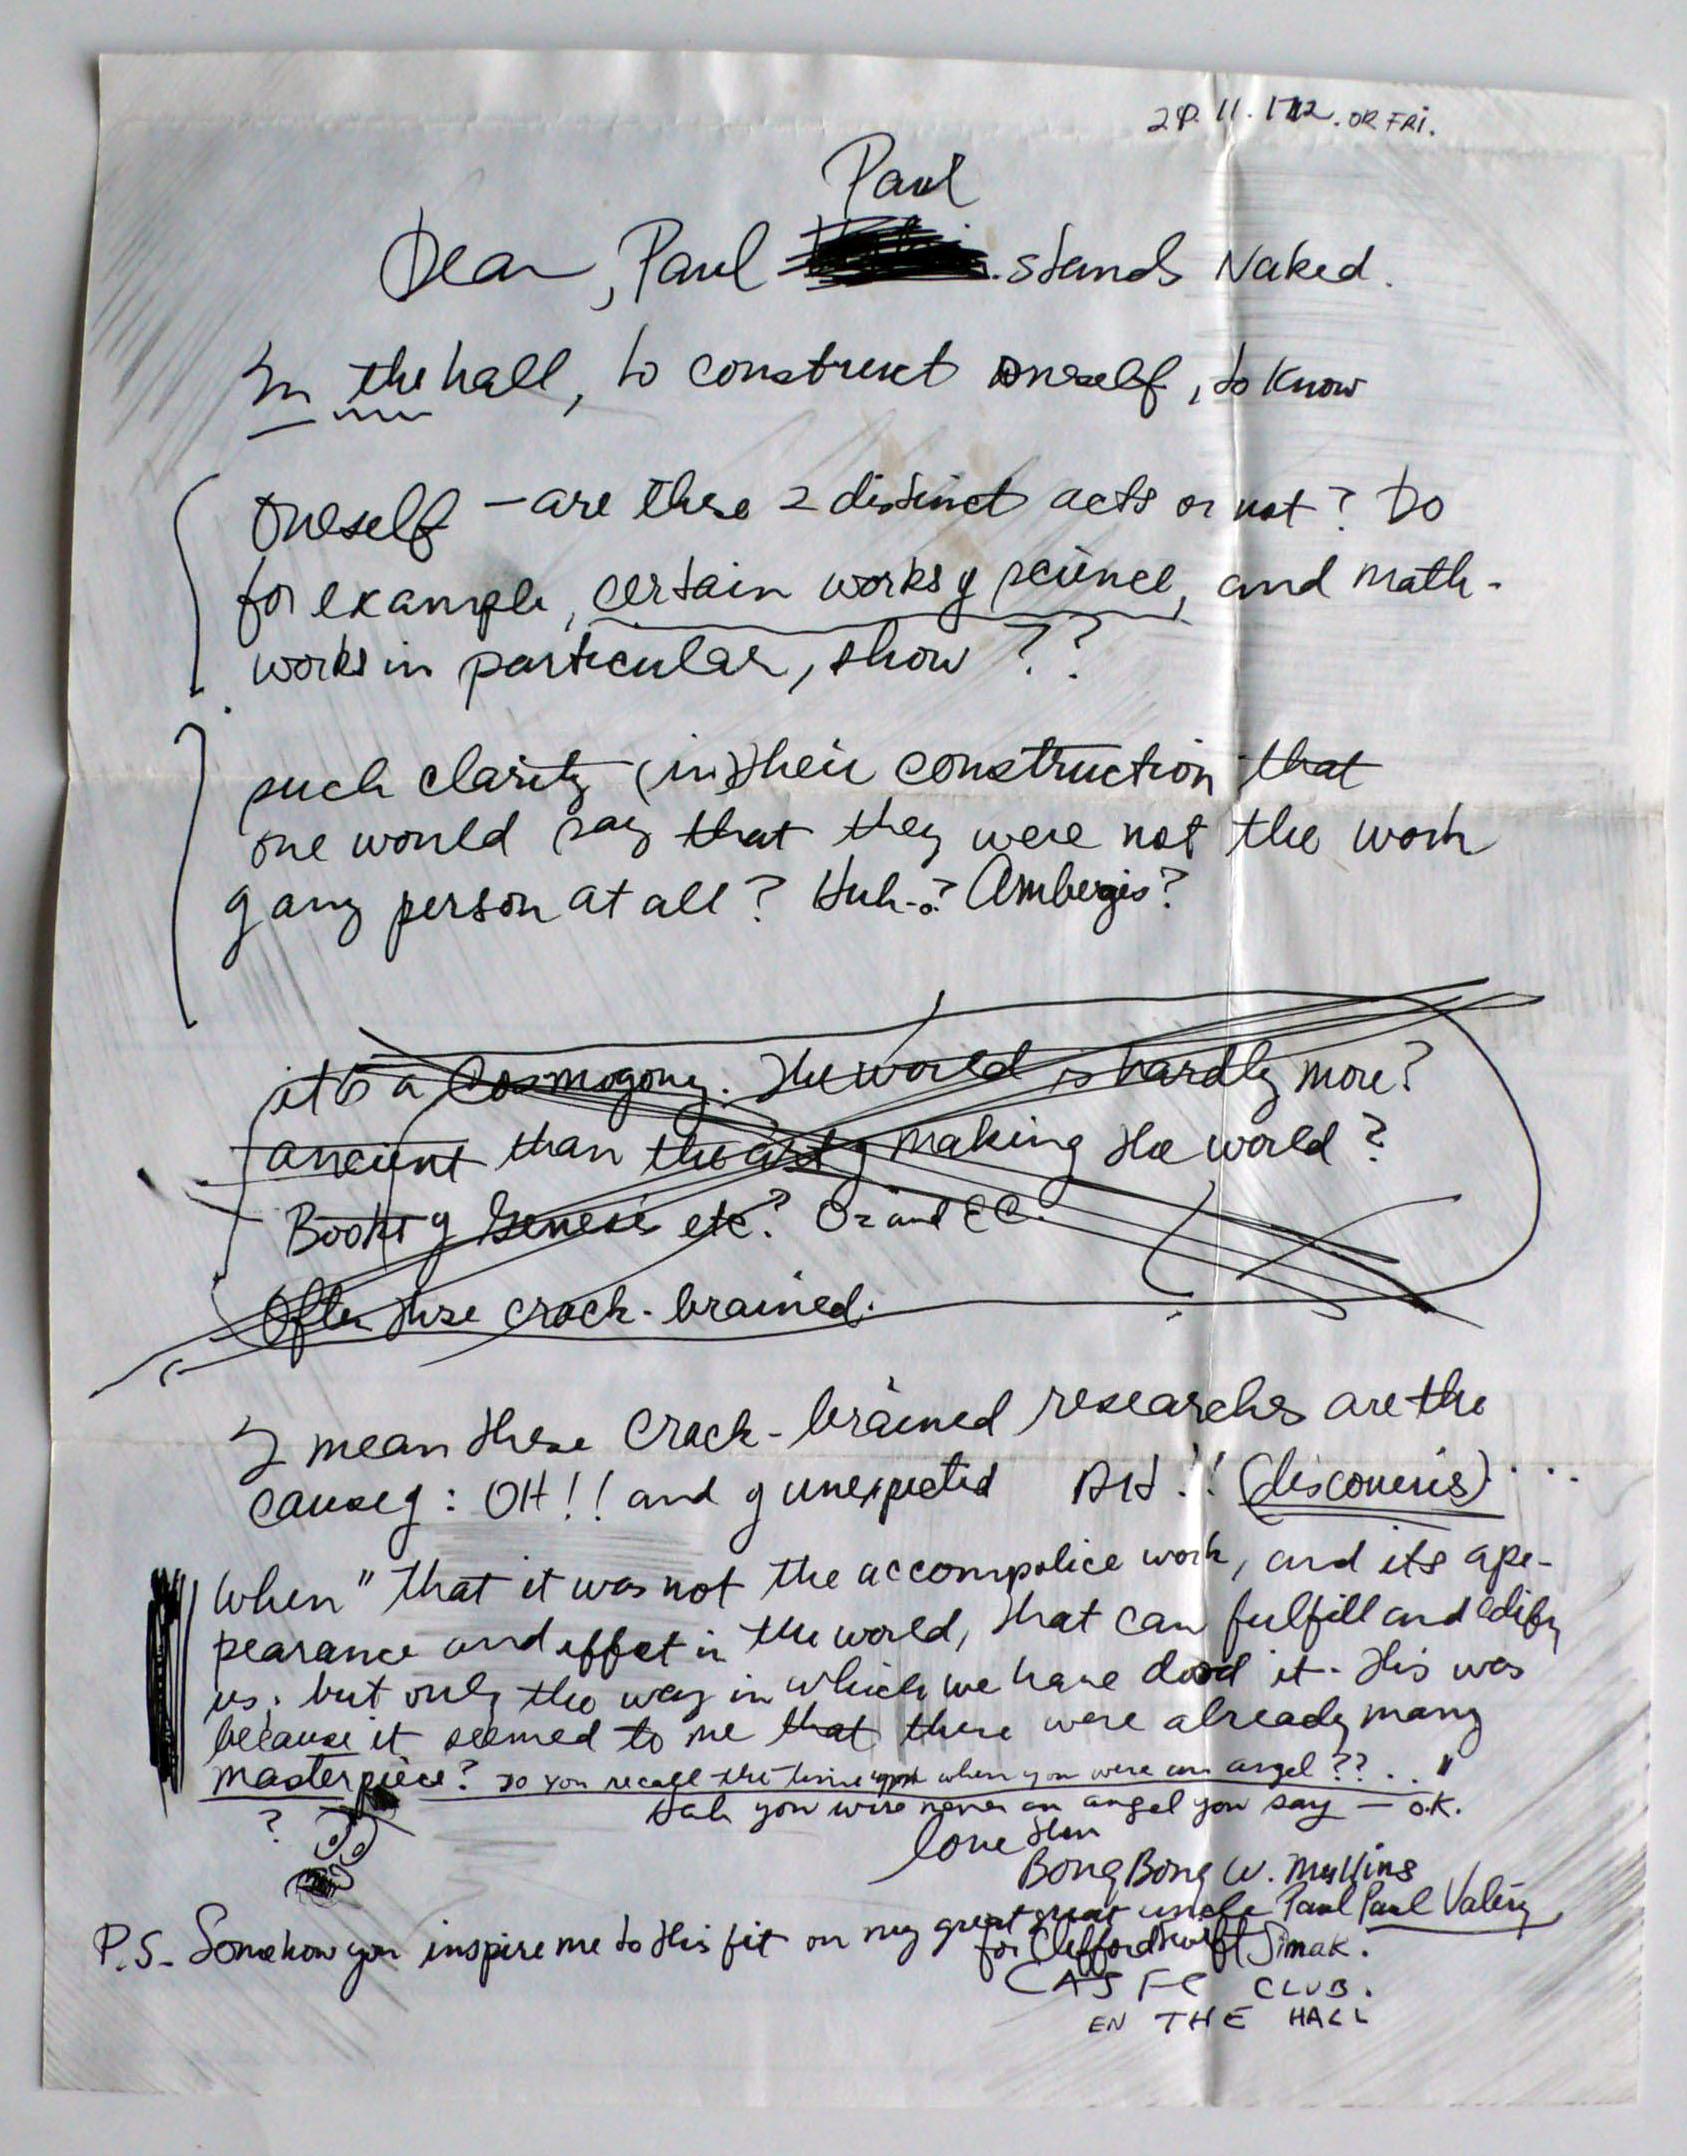 11. OR FRI.
Paul
Dear, Paul stands Naked.
In the hall, to construct oneself, to know
oneself – are these 2 distinct acts or not? Do
for example, certain works of science, and math-
works in particular, show ??
such clarity (in) their construction that
one would say that they were not the work
of any person at all? Huh-? Ambergis?
it's a Cosmogony. The world is hardly more?
ancient than the art of making the world?
Books of Genesis etc? Oz and CC.
Often these crack-brained.
I mean these crack-brained researches are the
cause of: OH!! and of unexpected AH!! (discoveris) ....
When "that it was not the accompolice work, and its ape-
pearance and effect in the world, that can fulfill and edify
us; but only the way in which we have it. This was
because it seemed to me that there were already many
masterpiece? do you recall the time when you were an angel ??..."
? Hah you were never an angel you say – O.K.
love then
Bong Bong W. Mullins
P.S. Somehow you inspire me to this fit on my great great uncle Paul Paul Valéry
for Clifford Simak.
CLUB.
EN THE HALL